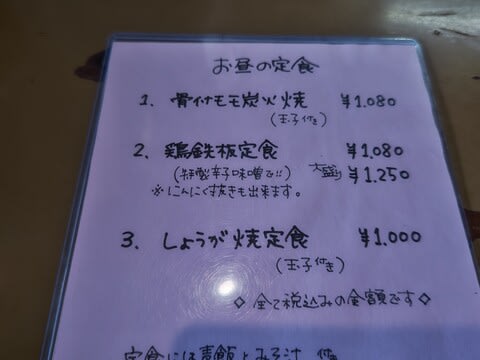 お昼の定食
1. 骨付モモ炭火焼 ¥1.080
(玉子付き)
2. 鶏鉄板定食 ¥1.080
(特製辛子味噌で!!) 大盛り ¥1.250
※にんにく抜きも出来ます。
3. しょうが焼定食 ¥1.000
(玉子付き)
◇全て税込みの金額です◇
定食には麦飯とみそ汁